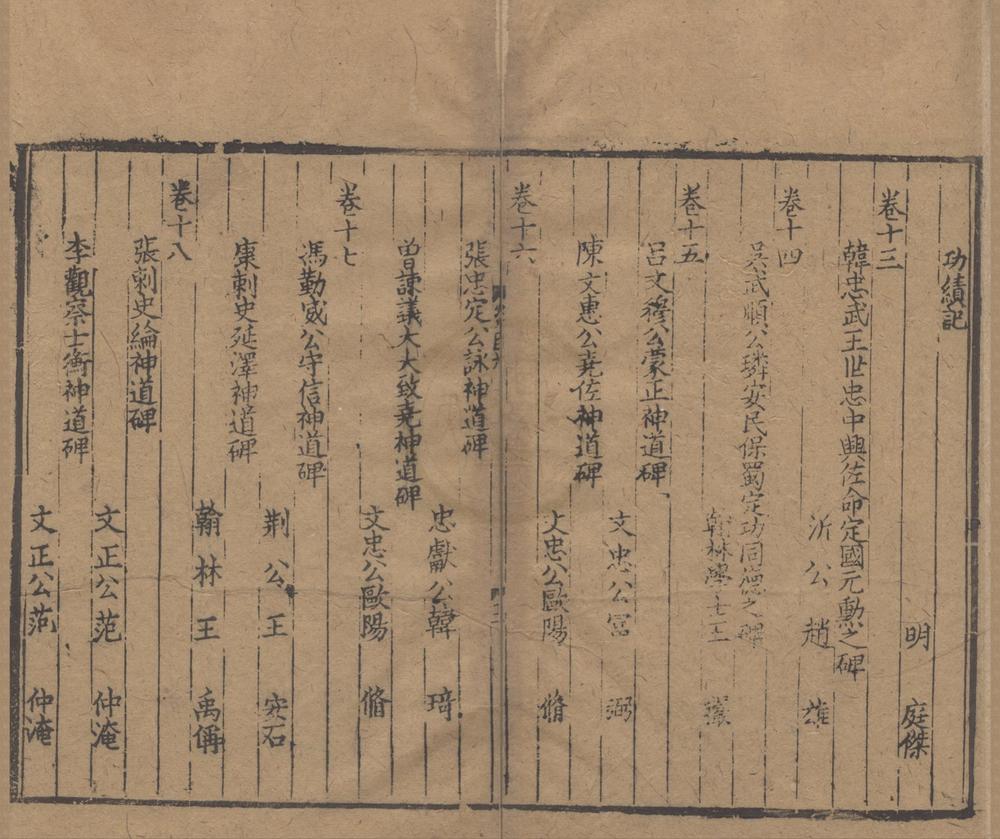 功績記
明 庭傑
卷十三
韓忠武王世忠中興佐命定國元勳之碑
沂公趙 雄
卷十四
吳武順公璘安民保蜀定功同德之碑
翰林學士王
卷十五
呂文穆公蒙正神道碑
文忠公富 弼
陳文惠公堯佐神道碑
文忠公歐陽 脩
卷十六
張忠定公詠神道碑
忠獻公韓 琦
曾諫議大夫致堯神道碑
文忠公歐陽 脩
卷十七
馮勤威公守信神道碑
荆公王 安石
康刺史延澤神道碑
翰林王 禹偁
卷十八
張刺史綸神道碑
文正公范 仲淹
李觀察士衡神道碑
文正公范 仲淹